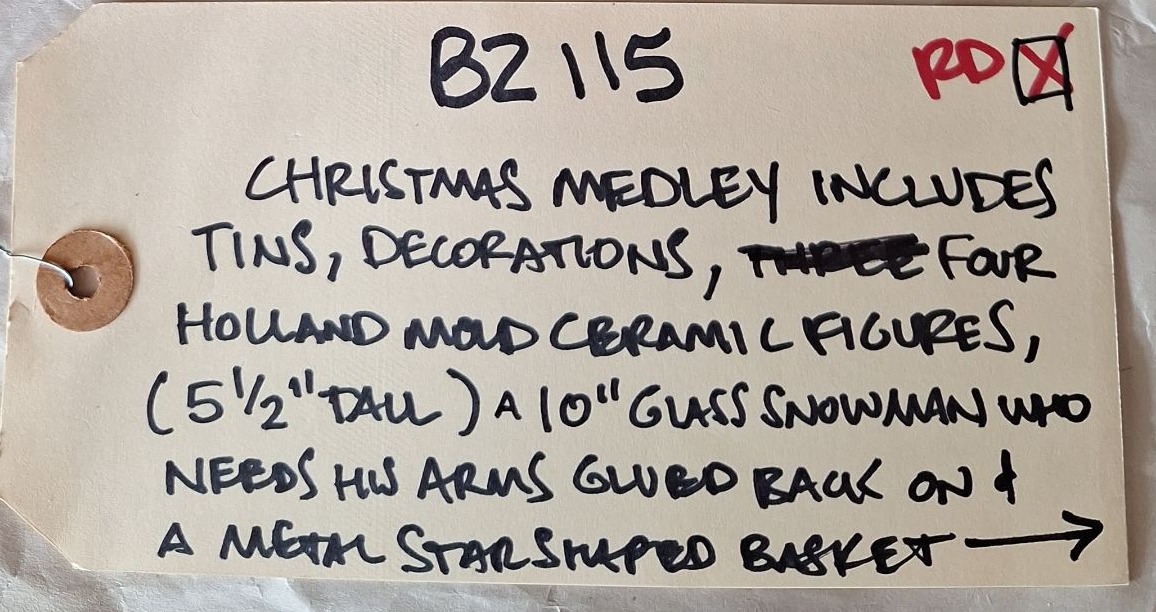 B2115 RD X
CHRISTMAS MEDLEY INCLUDES
TINS, DECORATIONS, THREE FOUR
HOLLAND MOLD CERAMIC FIGURES,
(5 1/2" TALL) A 10" GLASS SNOWMAN WHO
NEEDS HIS ARMS GLUED BACK ON &
A METAL STAR SHAPED BASKET →